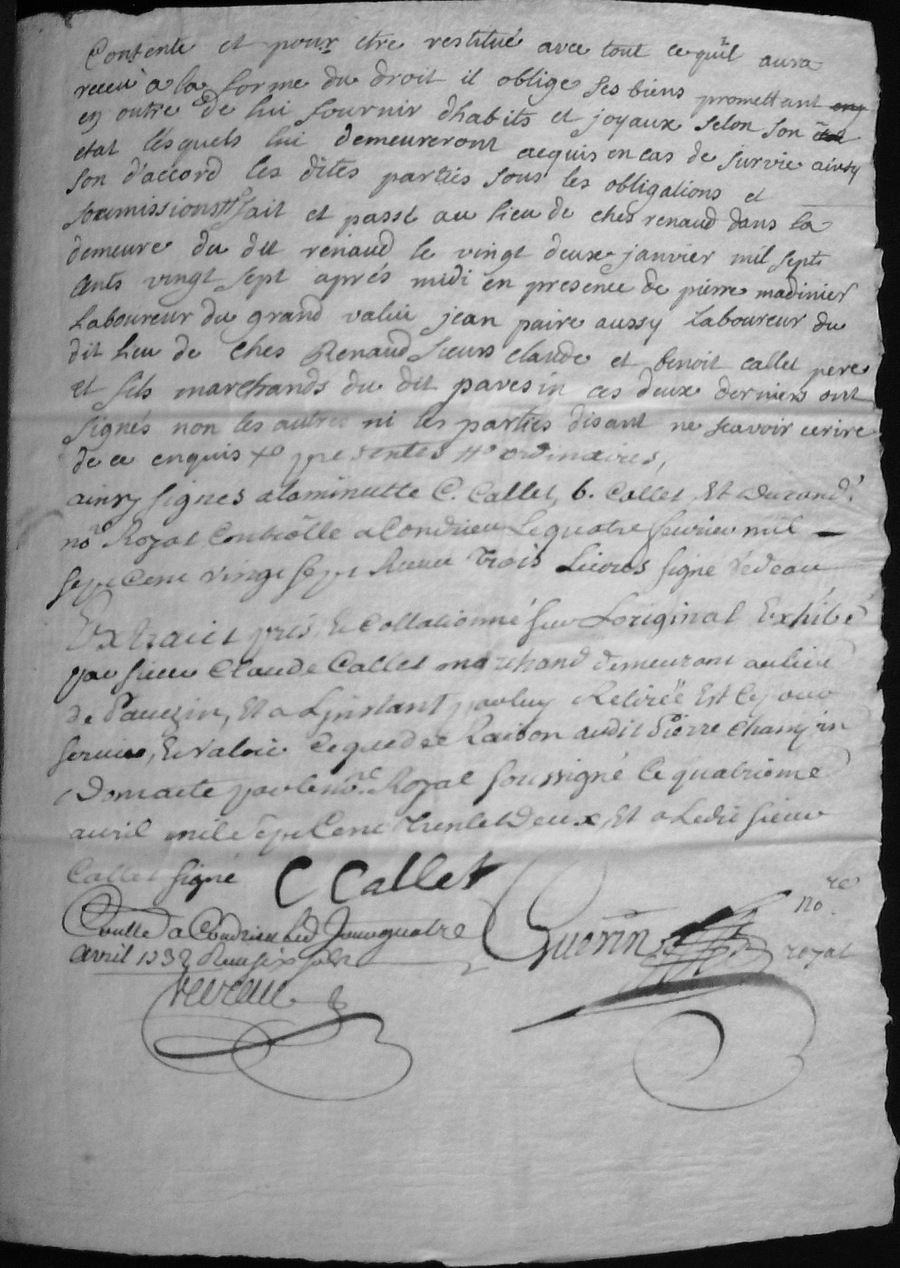 Consente et pour etre restitué avec tout ce qu'il aura
receu a la forme du droit il oblige ses biens promettant
en outre de lui fournir d'habits et joyaux selon son
etat lesquels lui demeureront acquis en cas de survie ainsy
son d'accord les dites parties sous les obligations et
soumissions fait et passé au lieu de ches renaud dans la
demeure du dit renaud le vingt deux janvier mil septs
cents vingt sept aprés midi en presence de pierre madinier
Laboureur du grand valui jean paire aussy laboureur du
dit lieu de Ches Renaud Sieurs claude et benoit callet pere
et fils marchands du dit pavesin ces deux derniers ont
signés non les autres ni les parties disant ne scavoir ecrire
de ce enquis presentes ordinaires,
ainsy signes a la minutte C. Callet, b. Callet Et Durand
no Royal Controlle a Condrieu Le quatre fevrier mil
sept Cent vingt sept Receu Trois Livres signé vedeau
Extraict pris Et Collationné sur L'original Exhibé
par sieur Claude Callet marchand demeurant au lieu
de Pavezin, Et a L'jnstant par luy Retirée Et
servir, Et valoir Ce que de Raison audit Pierre
Dont acte par le no.re Royal soussigné Ce quatrieme
avril mil sept Cent Trente Deux, Et a Ledit sieur
Callet signé C Callet
Guerin no.re royal
Conttlé a Condrieu Led. Jour quatre
avril 1732 Receu six sols
vedeau